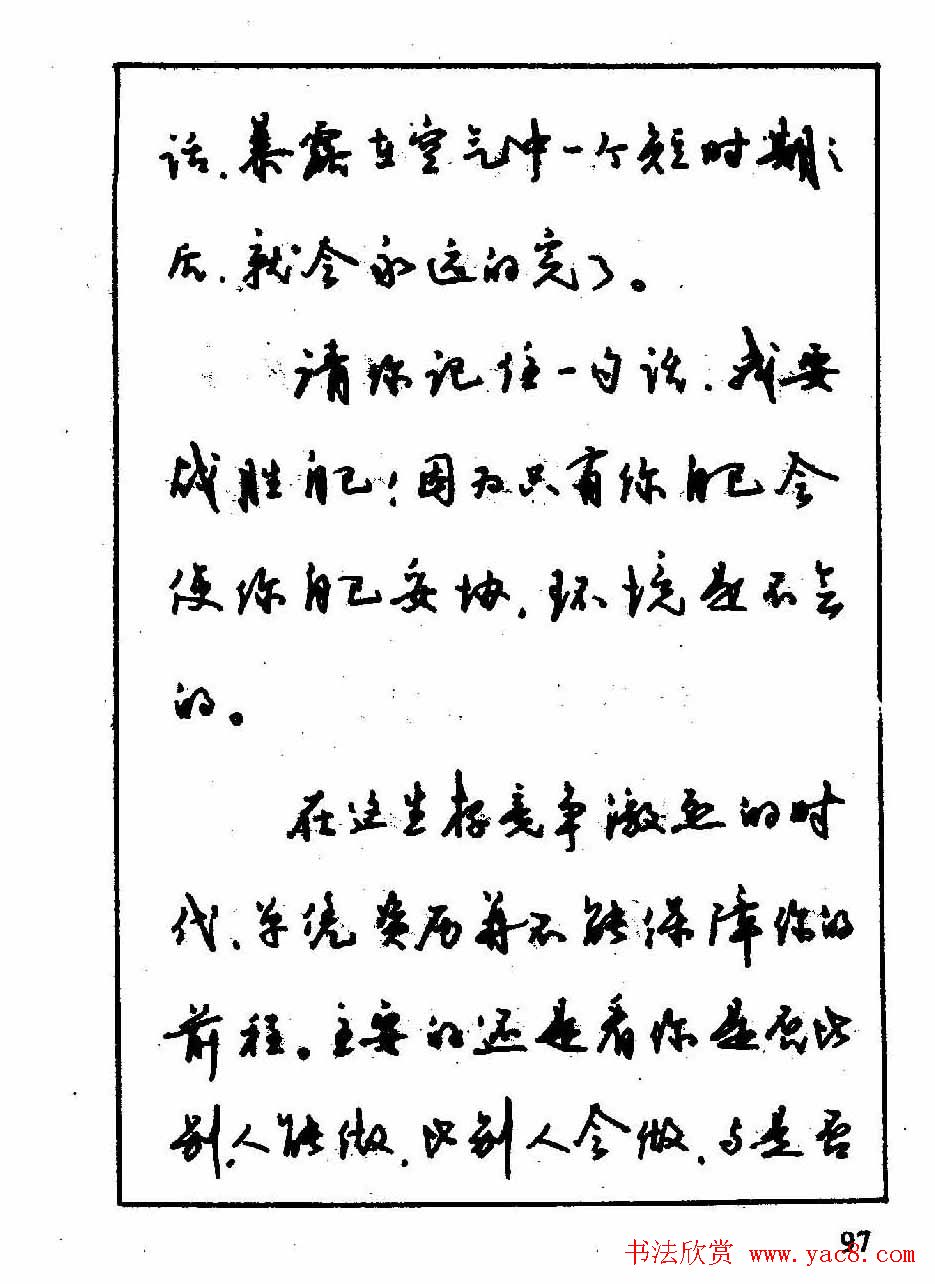 话，暴露在空气中一个短时期之
后，就会永远的完了。
请你记住一句话，我要
战胜自己！因为只有你自己会
使你自己妥协，环境是不会
的。
在这生存竞争激烈的时
代，单凭资历并不能保障你的
前程。主要的还是看你是否比
别人能做，比别人会做，与是否
97
书法欣赏 www.yac8.com